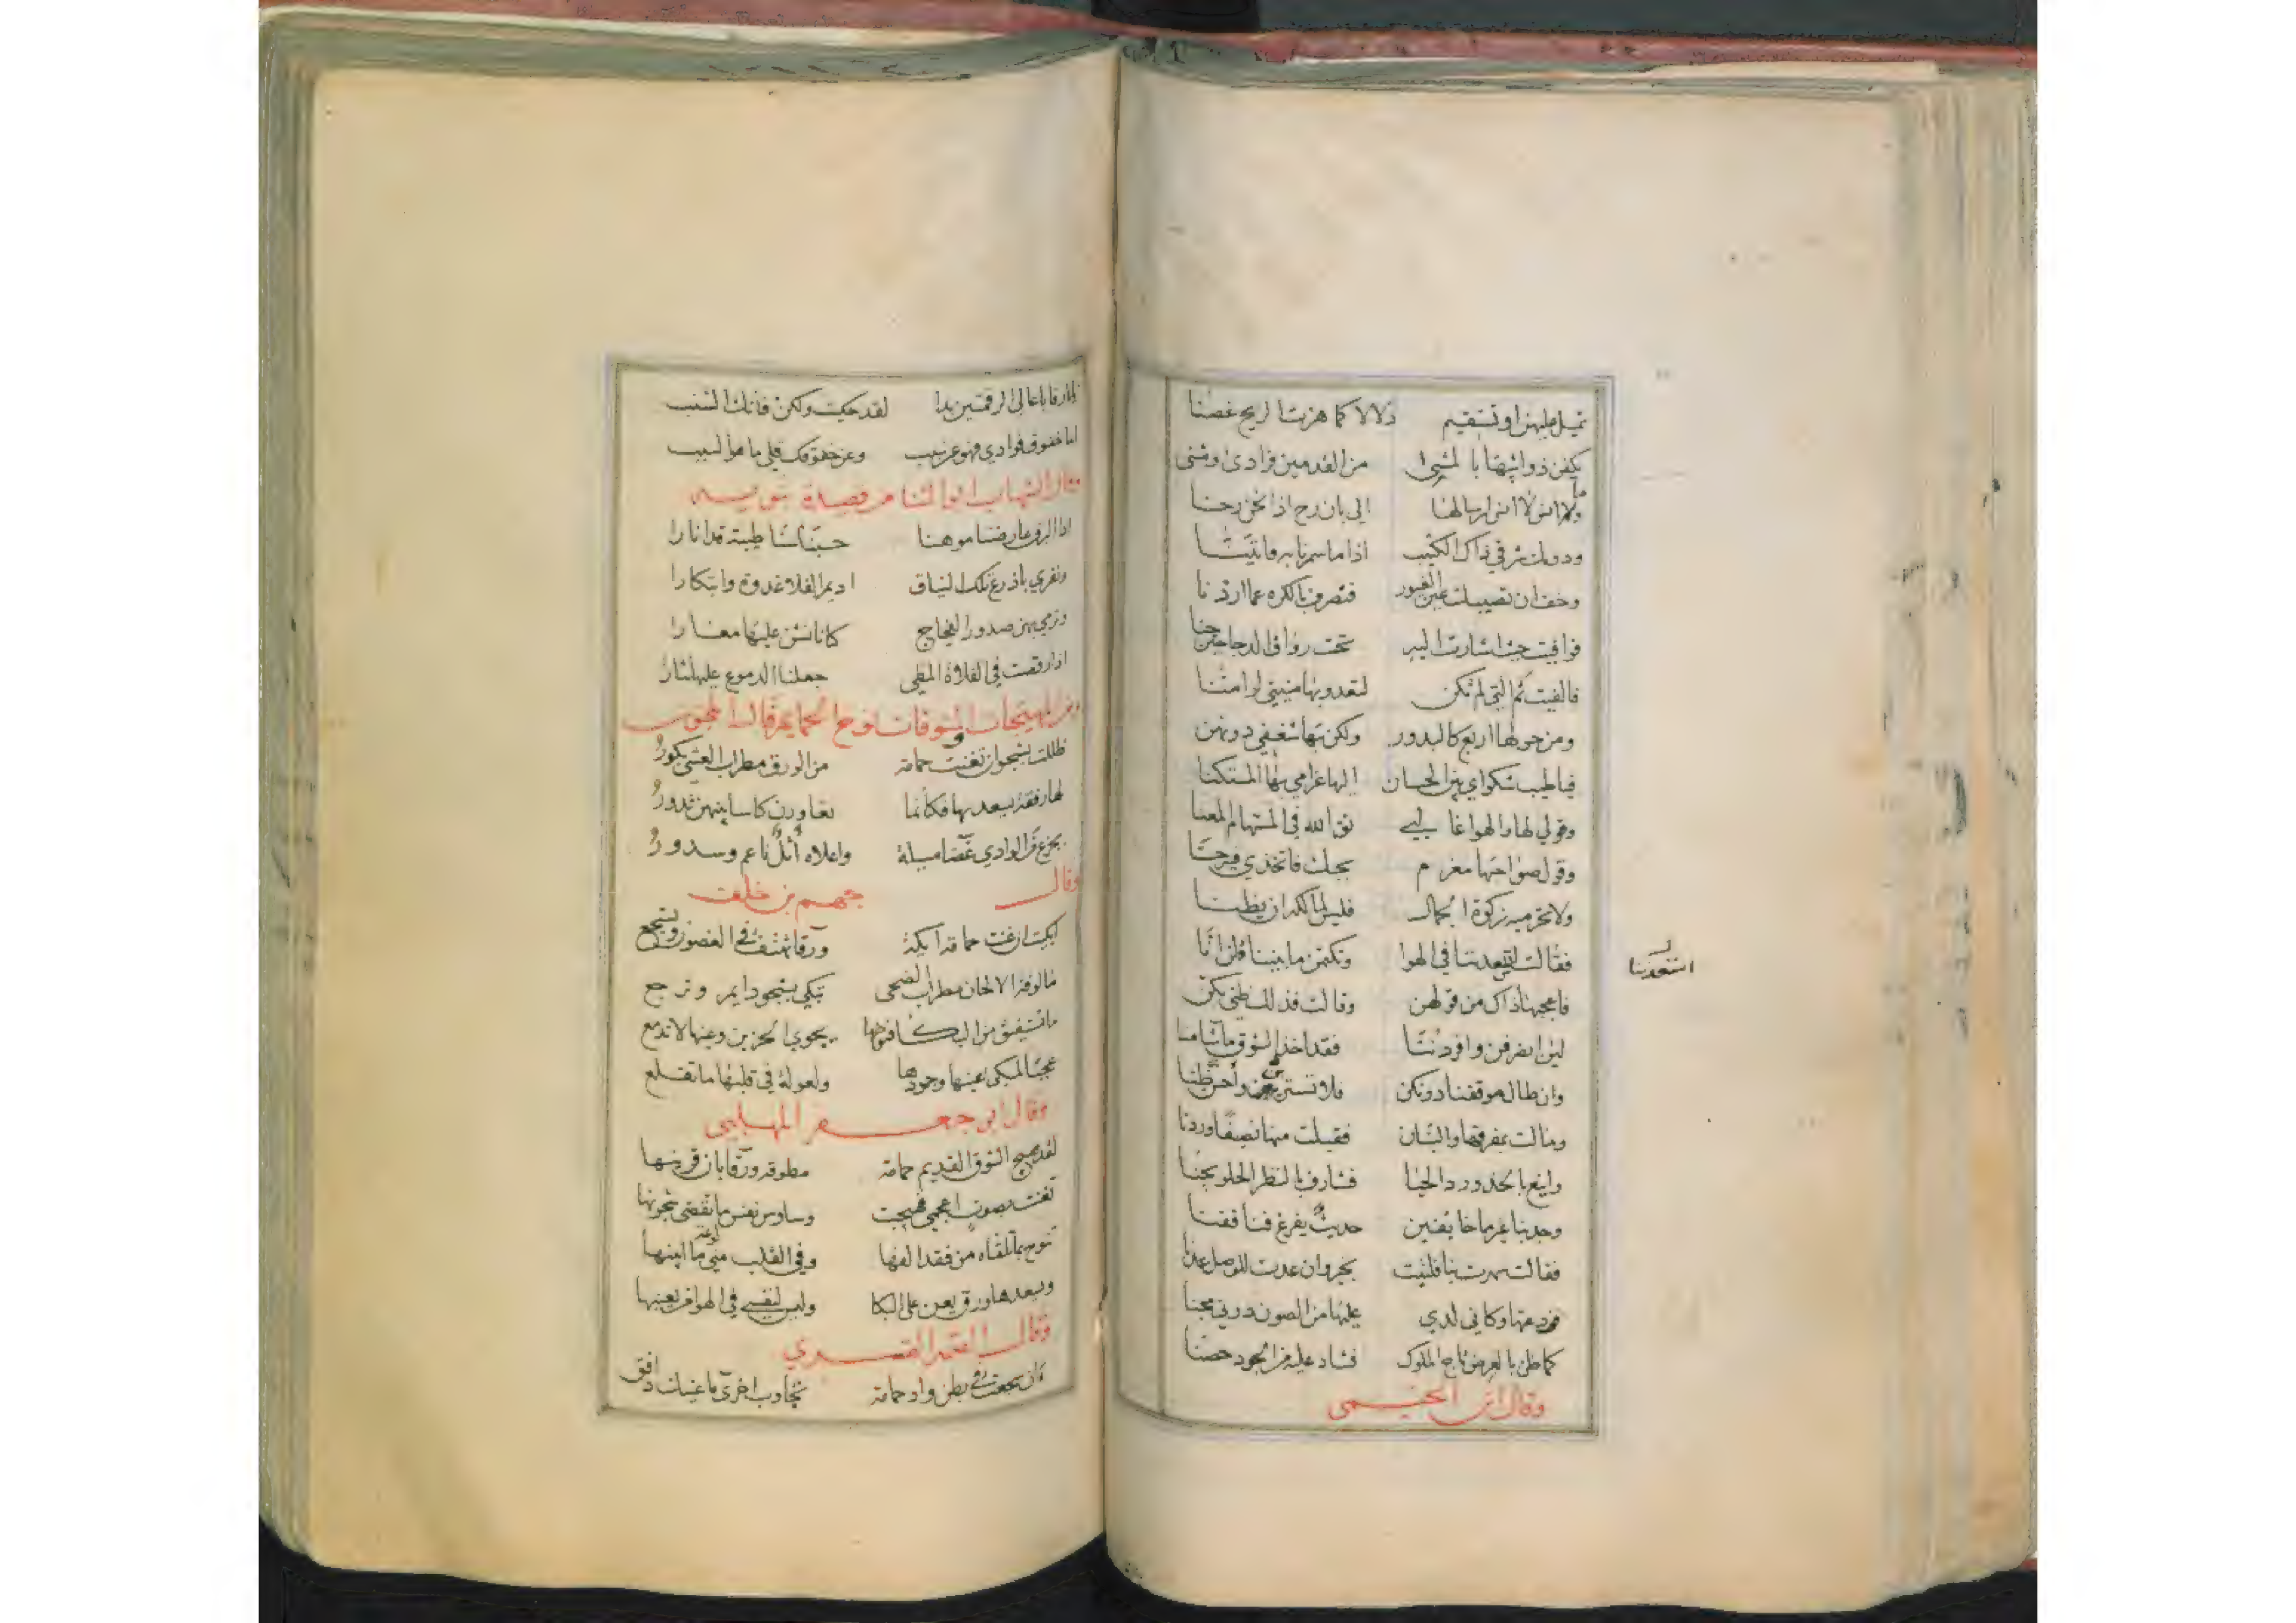 تميل عليهن او تستقيم دلالا كما هزت الريح غصنا
يكفن ذوائبها بالمشي من القدمين فرادى ومثنى
ولم انس لا انس ارسالها الى بان رح اذا نحن رحنا
ودونك شرقي ذاك الكثيب اذا ما سمرنا به
وخف ان تصيبك عين الغيور فتصرف بالكره عما اردنا
فوافيت حيث اشارت اليه تحت رواق الدجا حين جنا
فالفيت ثم التي لم تكن لتعدو بها منيتي لو امتنا
ومن حولها اربع كالبدور ولكن بها شغفي دونهن
فيا طيب شكواي بين الحسان اليها غرامي بها المستكنا
وقولي لها والهوا غالبي تق الله في المستهام المعنا
وقول صواحبها مغرم بحبك فاتخذي فيه حسنا
ولا تحرميه زكوة الجمال فليس لمالكه ان يظنا
فقالت في الهوا وتكتمن ما بيننا قلن انا
استعدننا
فاعجبها ذاك من قولهن وقالت فذلك ظني بكن
لئن انصرفن وافردننا فقد اخذ الشوق ما شا منا
وان طال موقفنا دونكن فلا تسترين واحسن ظنا
ومالت بمفرقها والبنان فقبلت منها نصيفا وردنا
واينع بالخد ورد الحيا فشارف بالنظر الحلو يجنا
وجدنا غريما خايفين حديث يفرغ فنا ففنا
فقالت سهرت بنا قلت بخير وان عدت للوصل عدنا
فودعتها وكاني لدي عليها من الصون دوني مجنا
كما ظن بالعرض تاج الملوك فشاد عليه من الجود حصنا
وقال ابن
يا بارقا باعالي الرقمتين بدا لقد حكيت ولكن فاتك الشنب
اما خفوق فوادي فهو عن سبب وعن خفوقك قلي ما هو السبب
وقال الشهاب ابو الثنا من قصيدة نبويه
اذا البرق عارضنا موهنا حسبنا سنا طيبة قد انارا
ونفري باذرع تلك النياق اديم الفلا غدوة وابتكارا
ونرمي بهن صدور الفجاج كانا نشن عليها مغارا
اذا رقصت في الفلاة المطي جعلنا الدموع عليها نثارا
ومن المهيجات المشوقات نوح الحمايم قال المجنون
ظللت بشجو ان تغنت حمامة من الورق مطراب العشي بكور
لها رفقة يسعدنها فكانما تعاورن كاسا بينهن تدور
بجزع من الوادي واعلاه اثل ناعم وسدور
وقال جهم بن خلف
ابكيت ان غنت حمامة ايكة ورقا تهتف في الغصون وتسجع
مالوفة الالحان مطراب الضحى تبكي بشجو دايم وترجع
ما تستفيق من البكا فنوحها يحوي الحزين وعينها لا تدمع
عجبا لمبكي عينها وجودها ولعولة في قلبها ما تقلع
وقال ابن جعفر المهلبي
لقد هيج الشوق القديم حمامة مطوقة ورقا بان قرينها
تغنت بصوت اعجمي فهيجت وساوس نفس ما تقضى شجونها
تنوح بما تلقاه من فقد الفها وفي القلب مني لوعة ما ابينها
ويسعدها ورق يعن على البكا وليس لنفسي في الهوا من يعينها
وقال
ان سجعت في بطن واد حمامة تجاوب اخرى ما عينك دافق